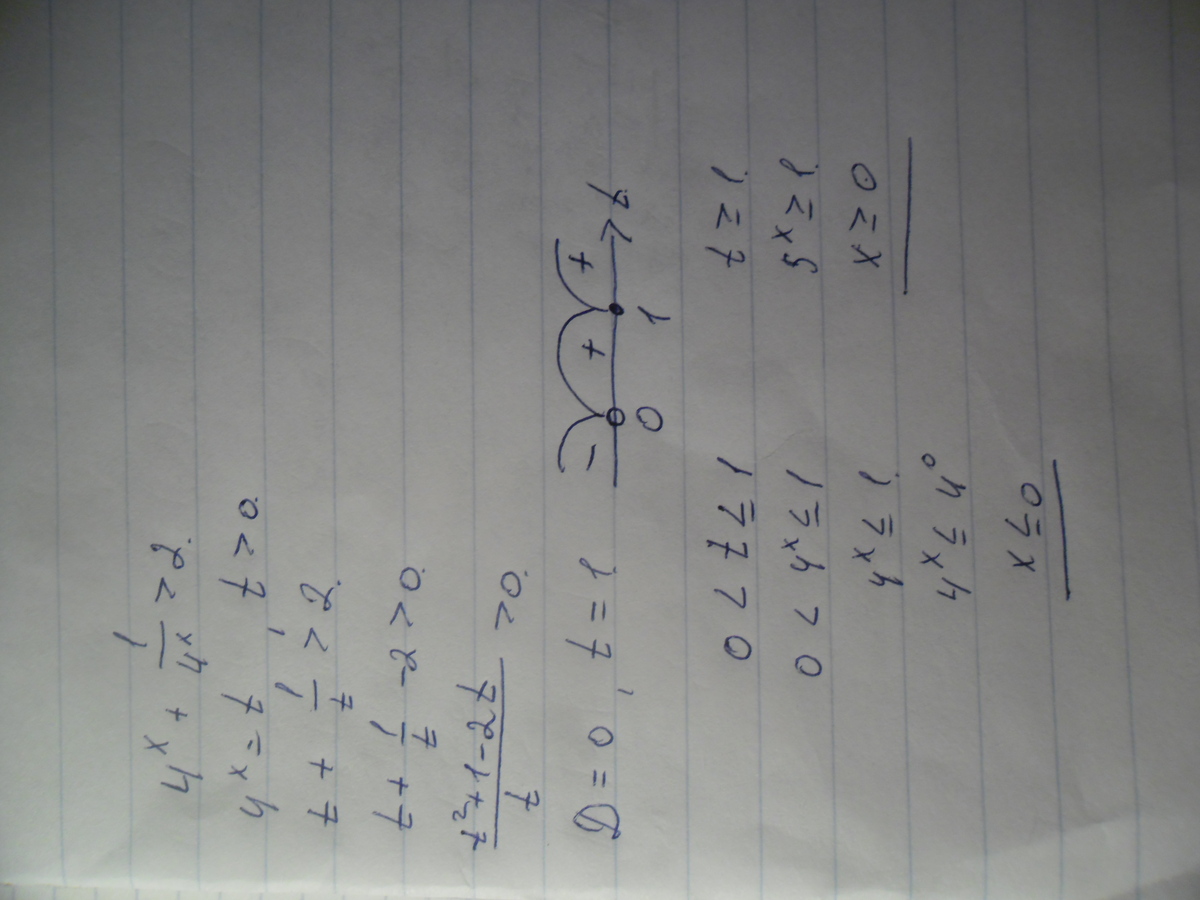 4^x + 1/4^x > 2.
4^x = t, t > 0.
t + 1/t > 2.
t + 1/t - 2 > 0.
(t² + 1 - 2t)/t > 0.
D = 0, t = 1
- + + t
0 1
0 < t ≤ 1 t ≥ 1
0 < 4^x ≤ 1 5^x ≥ 1
4^x ≤ 1 x ≥ 0
4^x ≤ 4^0
x ≤ 0